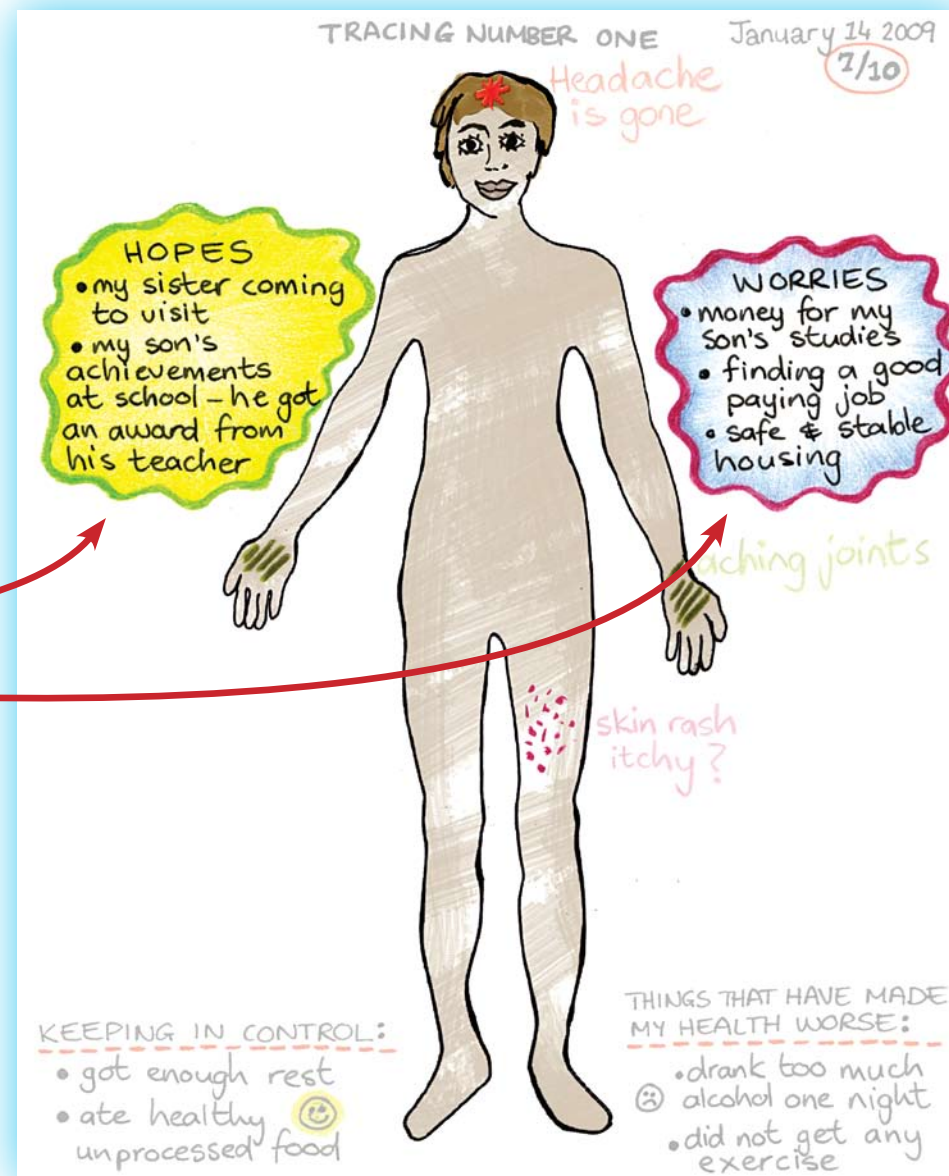 TRACING NUMBER ONE
January 14 2009
7/10
Headache
is gone
HOPES
• my sister coming
to visit
• my son's
achievements
at school – he got
an award from
his teacher
WORRIES
• money for my
son's studies
• finding a good
paying job
• safe & stable
housing
aching joints
skin rash
itchy?
KEEPING IN CONTROL:
• got enough rest
• ate healthy
unprocessed food
THINGS THAT HAVE MADE
MY HEALTH WORSE:
• drank too much
alcohol one night
• did not get any
exercise